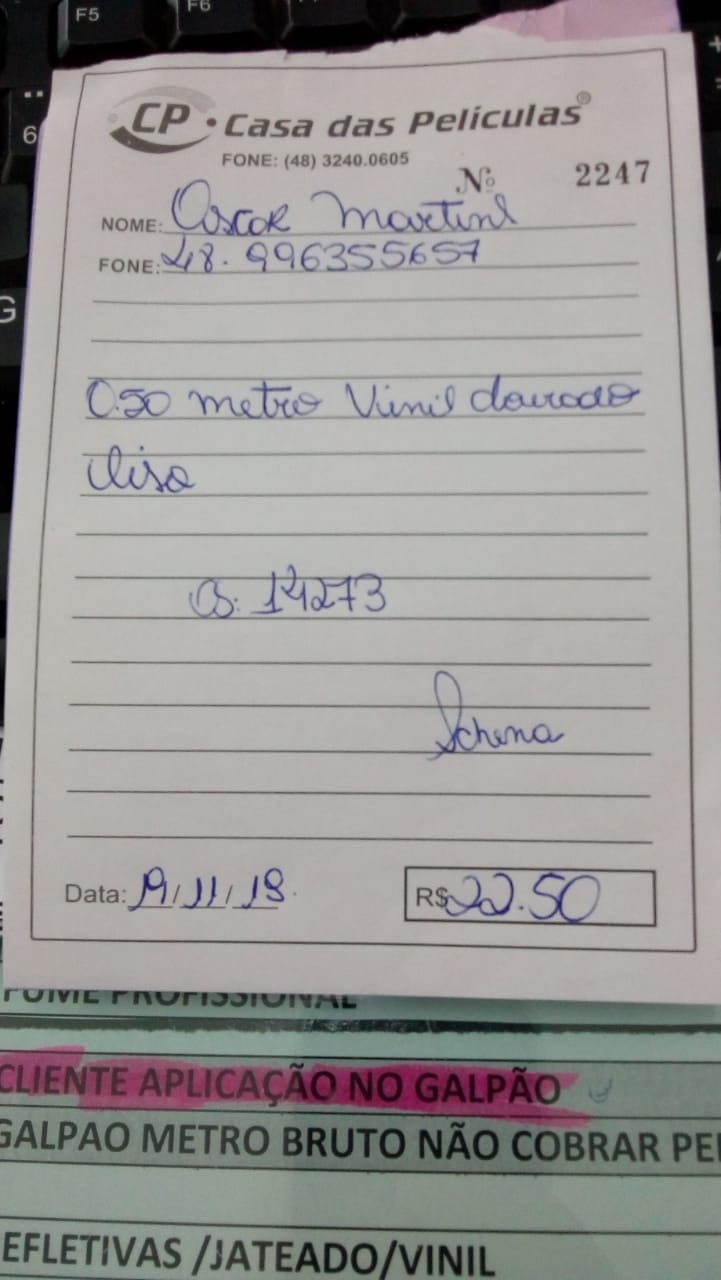 F5
F6
6
G
CP · Casa das Películas®
FONE: (48) 3240.0605
Nº 2247
NOME: Oscar Martins
FONE: 48. 996355657
0.50 metro Vinil dourado
liso
Os: 14273
Schena
Data: 19/11/19.
R$ 22.50
FUME PROFISSIONAL
CLIENTE APLICAÇÃO NO GALPÃO
GALPAO METRO BRUTO NÃO COBRAR PE
EFLETIVAS /JATEADO/VINIL